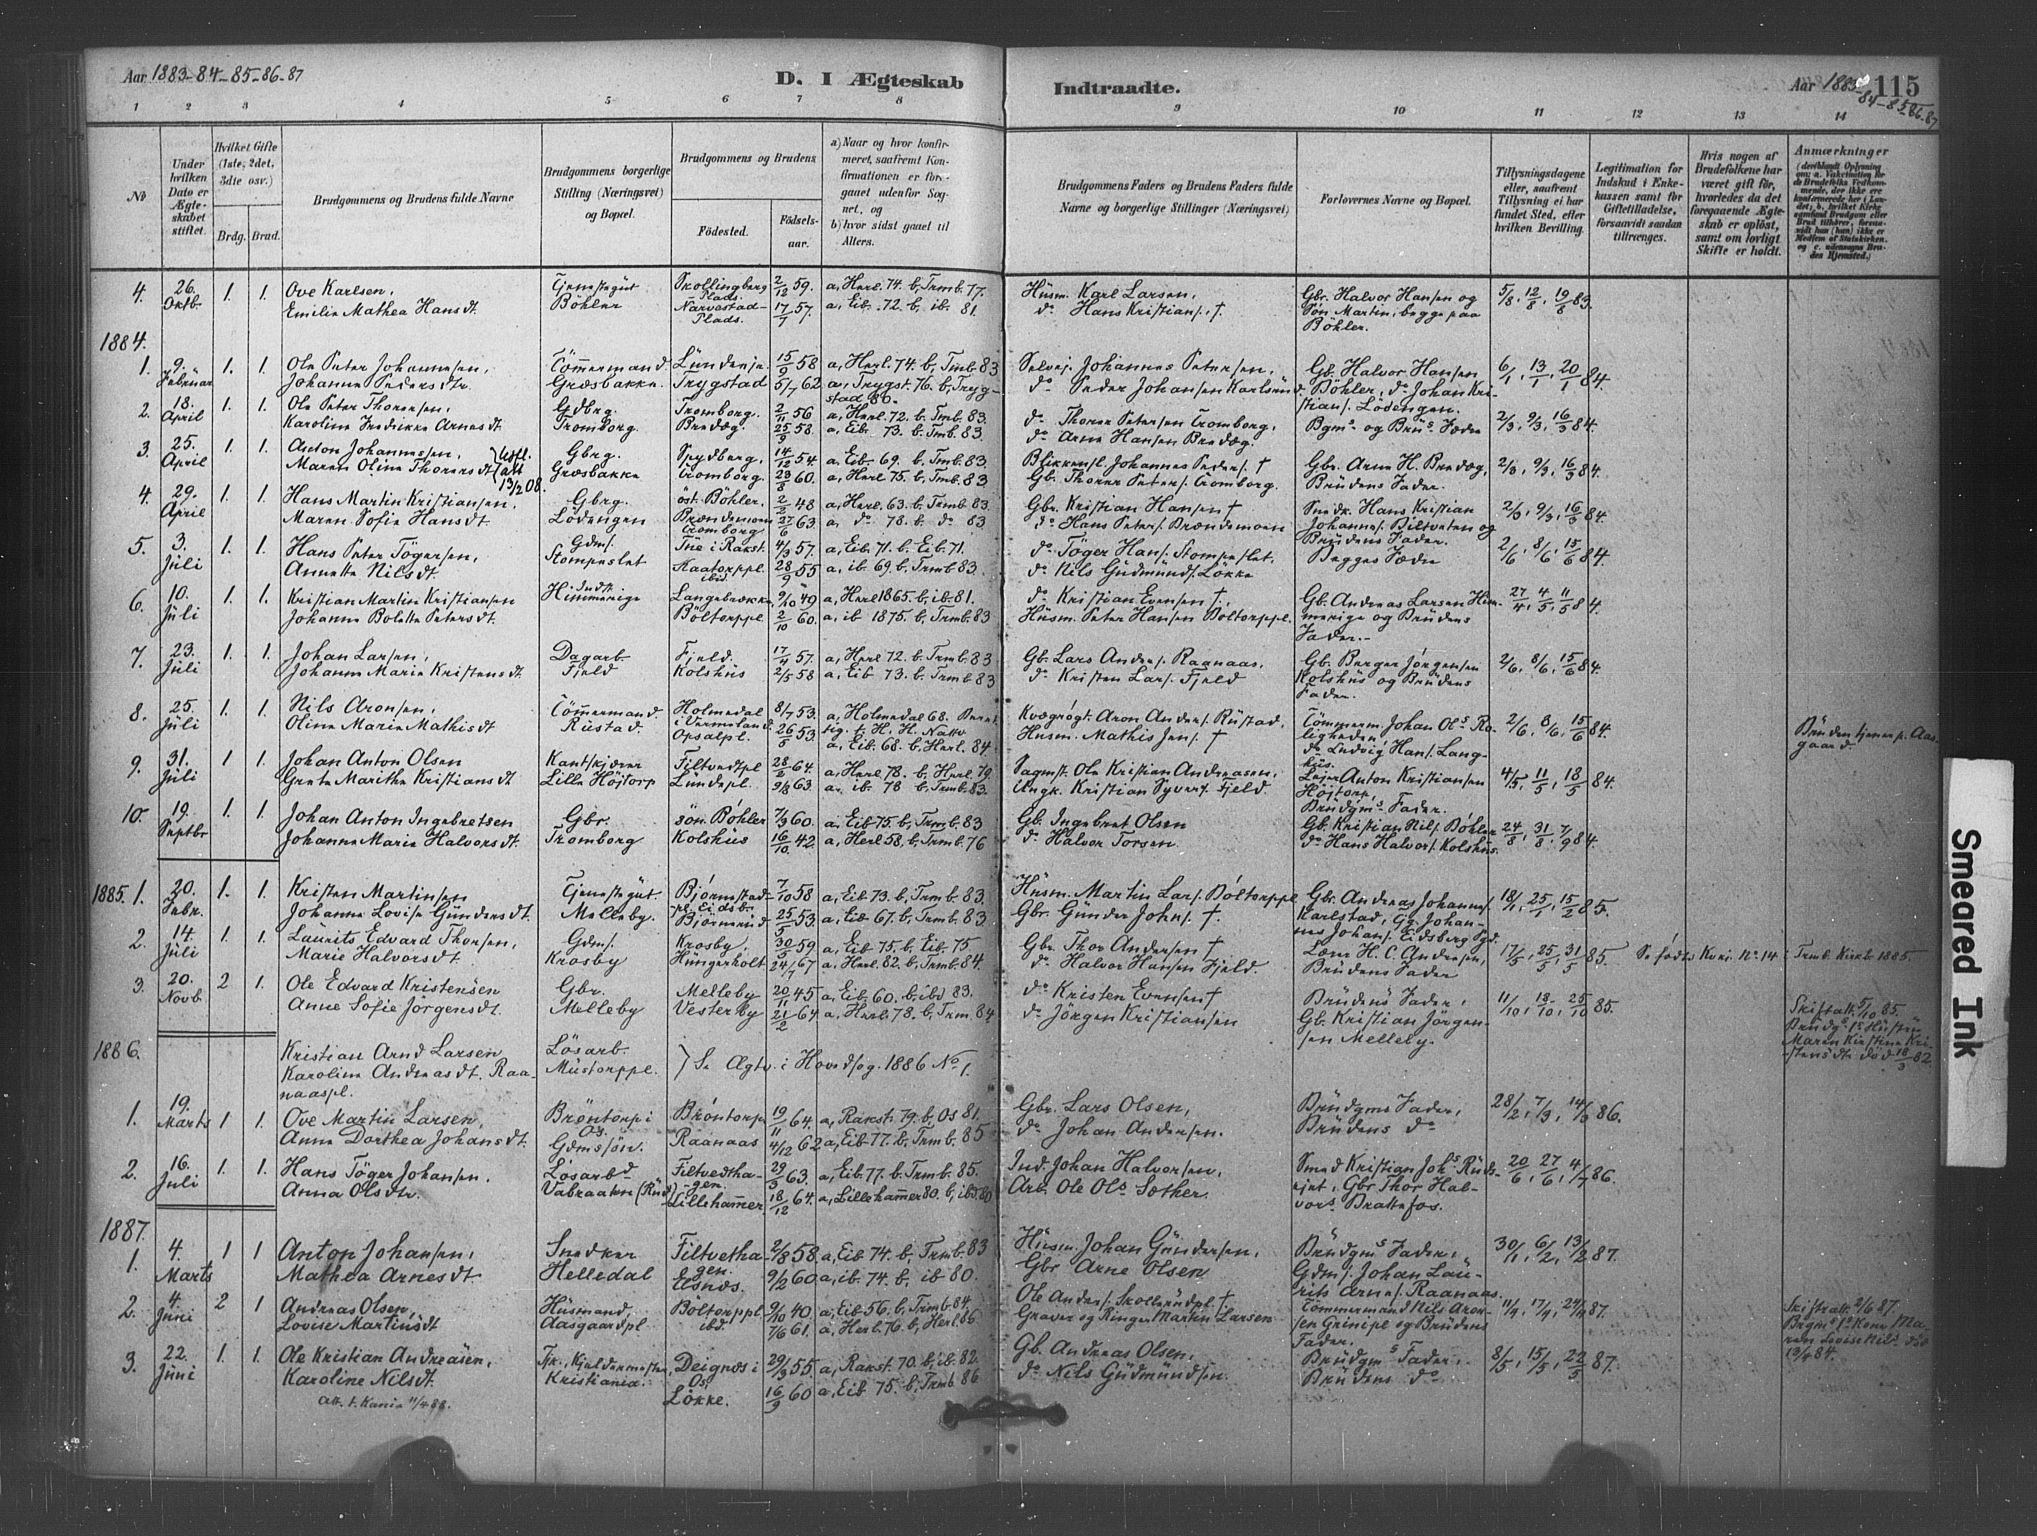 Aar 1883-84-85-86-87
D. I Ægteskab Indtraadte.
Aar 1883-84-85-86-87
115
1 2 3 4 5 6 7 8 9 10 11 12 13 14
No
Under hvilken Dato er Ægteskabet stiftet.
Hvilket Gifte (1ste, 2det, 3die osv.)
Brdg. Brud.
Brudgommens og Brudens fulde Navne
Brudgommens borgerlige Stilling (Næringsvei) og Bopæl.
Brudgommens og Brudens
Fødested. Fødselsaar.
a) Naar og hvor konfirmeret, saafremt Konfirmationen er foregaaet udenfor Sognet, og
b) hvor sidst gaaet til Alters.
Brudgommens Faders og Brudens Faders fulde Navne og borgerlige Stillinger (Næringsvei)
Forlovernes Navne og Bopæl.
Tillysningsdagene eller, saafremt Tillysning ei har fundet Sted, efter hvilken Bevilling.
Legitimation for Indskud i Enkekassen samt for Giftetilladelse, forsaavidt saadan tiltrænges.
Hvis nogen af Brudefolkene har været gift før, hvorledes da det foregaaende Ægteskab er opløst, samt om lovligt Skifte er holdt.
Anmærkninger
4. 26. Oktb. 1. 1. Ove Karlsen, Tjenestegut Skollingberg Plads. 2/12 59. a, Herl. 74. b, Trmb. 77. Husm. Karl Larsen, Gbr. Halvor Hansen og 5/8, 12/8, 19/8 83.
Emilie Mathea Hansdt Böhler Narvestad-Plads. 17/7 57. a. Eib. 72. b, ib. 81. do Hans Kristians. † Søn Martin, begge paa Böhler.
1884.
1. 9. Februar 1. 1. Ole Peter Johannesen, Tömmermand Lundeneje 15/9 58 a, Herl. 74. b, Trmb. 83 Selvej. Johannes Petersen, Gb. Halvor Hansen 6/1, 13/1, 20/1 84.
Johanne Pedersdtr. Græsbakke. Trygstad 5/7 62 a, Trygst. 76. b, Trygstad 80. do Peder Johansen Karlsrud. Böhler, do Johan Kristians. Lödengen.
2. 18. April 1. 1. Ole Peter Thoresen, Gdbrg. Tromborg. 2/11 56 a, Herl. 72. b, Trmb. 83. do Thorer Petersen Tromborg, Bgms og Brus Fædre 2/3, 9/3, 16/3 84.
Karoline Fredrikke Arnesdt Tromborg. Bredæg 25/9 58. a. Eib. 73. b. Tmb. 83. do Arne Hansen Bredæg.
3. 25. April 1. 1. Anton Johannessen, Gbrg. Spydberg. 14/12 54. a. Eib. 69. b. Trmb. 83. Blikkensl. Johannes Peders. † Gbr. Arne H. Bredæg, 2/3, 9/3, 16/3 84.
Maren Oline Thorersdt Græsbakke Tromborg. 23/8 60. a, Herl. 75. b, Tmb. 83 Gb. Thorer Peters. Tromborg. Brudens Fader.
Utfl. att 13/2 08.
4. 29. April 1. 1. Hans Martin Kristiansen, Gbrg. öst. Böhler. 2/2 48 a, Herl. 63. b. Trmb. 83 Gbr. Kristian Hansen † Smedk. Hans Kristian 2/3, 9/3, 16/3 84.
Maren Sofie Hansdt Lödengen Brændemoen Tromborg 27/6 63. a. do 78. b. do 83 do Hans Peters. Brændemoen Johannes. Biltveten og Brudens Fader.
5. 3. Juli 1. 1. Hans Peter Tögersen, Gdms. Tue i Rakst. 4/3 57. a, Eib. 71. b. Eib. 71. do Töger Hans. Stompeslet. Begges Fædre 2/6, 8/6, 15/6 84.
Annette Nilsdt. Stompeslet Aaatorppl. ibid. 28/9 55 a, ib 69. b, Trmb 83. do Nils Gudmunds. Løkke
6. 10. Juli 1. 1. Kristian Martin Kristiansen Indst. Himmerige Langebrække 9/10 49 a, Herl 1865. b, ib. 81. do Kristian Evensen †. Gb. Andreas Larsen Himmerige og Brudens Fader. 27/4, 4/5, 11/5 84.
Johanne Bolette Petersdt. Böltorppl 2/10 60. a. ib 1875. b, Trmb. 83. Husm. Peter Hansen Böltorppl.
7. 23. Juli 1. 1. Johan Larsen, Dagarb. Fjeld. 17/4 57. a, Herl 72. b. Trmb. 83 Gb. Lars Anders. Raanaas. Gb. Berger Jörgensen 2/6, 8/6, 15/6 84.
Johanne Marie Kristensdt Fjeld Kolshus 2/5 58 a. Eib. 73. b. Trmb 83 do Kristen Lars. Fjeld Kolshus og Brudens Fader.
8. 25. Juli 1. 1. Nils Aronsen, Tömmermand. Holmedal i Vermeland 8/7 53. a, Holmedal 68. Kvægrögt. Aron Anders. Rustad, Tömmerm. Johan Ols. 2/6, 8/6, 15/6 84. Bruden tjener p. Aasgaard.
Oline Marie Mathisdt Rustad. Opsalpl. 26/5 53. a. Eib. 68. b, Herl. 84. Husm. Mathis Jens. † do Ludvig Hans. Langhus.
9. 31. Juli 1 1. Johan Anton Olsen Kantskjærer Filtvedtpl 28/2 64. a, Herl 78. b, Herl 79. Sagmst. Ole Kristian Andreasen, Lejer Anton Kristiansen 4/5, 11/5, 18/5 84.
Grete Marithe Kristiansdt Lille Höjtorp Lundepl. 9/8 63. a. ib. 78 b, Trmb. 83. Ungk. Kristian Syvers. Fjeld. Höjtorp, Brudgms Fader.
10. 19. Septbr 1. 1. Johan Anton Ingebretsen Gbr. sön. Böhler 7/3 60 a, Eib 75. b, Trmb. 83 Gb. Ingebret Olsen Gb. Kristian Nils. Böhler 24/8, 31/8, 7/9 84.
Johanne Marie Halvorsdt. Tromborg Kolshus 16/10 42. a, Herl 58. b, Trmb. 76 do Halvor Torsen. do Hans Halvors. Kolshus.
1885. 1. 20. Febr. 1. 1. Kristen Martinsen Tjenestegut. Björnestad-pl. Eidsb. 7/10 58 a, Eib 73. b, Trmb. 83. Husm. Martin Lars. Böltorppl Gbr. Andreas Johannes. 18/1, 25/1, 15/2 85.
Johanne Lovise Gundersdt. Melleby. Björnerud 25/5 53. a, Eib 67. b, Trmb. 83. Gbr. Gunder Johns. †. Karlstad, Gg. Johannes Johans. Eidsberg Pgd.
2. 14. Juli 1. 1. Laurits Edvard Thorsen, Gdms. Krosby, 30/5 59 a, Eib. 75. b, Eib. 75 Gbr. Thor Andersen † Læm. H. C. Andersen, 17/5, 25/5, 31/5 85. Se födte Kvin. No. 14 i Trmb. Kirkb 1885.
Marie Halvorsdt. Krosby Hungerholt 24/7 67 a, Herl. 82. b, Trmb. 84. do Halvor Hansen Fjeld. Brudens Fader
3. 20. Novb. 2 1. Ole Edvard Kristensen Gbr. Melleby 20/11 45 a, Eib 60. b, ibd 83. do Kristen Evensen † Brudens Fader, 11/10, 18/10, 25/10 85. Skifteatt. 5/10 85.
Anne Sofie Jörgensdt. Melleby Vesterby 21/2 64. a, Herl. 78. b, Trm. 84. do Jörgen Kristiansen Gb. Kristian Jörgensen Melleby. Brudg.s 1s Hustru Maren Kirstine Kristensdtr död 18/3 82.
1886.
Kristian Arnd Larsen Lösarb. } Se Ægtv. i Hovedsog. 1886 No 1.
Karoline Andreasdt. Raanaaspl. Mustorppl.
1. 19. Marts 1 1. Ove Martin Larsen, Bröntorp i Os. Bröntorp 19/11 64. a, Rakst. 79. b, Os 81. Gbr. Lars Olsen, Brudgms Fader, 28/2, 7/3, 14/3 86.
Anne Dorthea Johansdt. Gdmssön. Raanaas 4/12 62 a, Eib 77. b, Trmb. 85 do Johan Andersen. Brudens do
2. 16. Juli 1. 1. Hans Töger Johansen. Lösarbd Filtvedthagen. 29/3 63. a, Eib 77. b, Trmb. 85. Ind. Johan Halvorsen, Smed Kristian Johs. 20/6, 27/6, 4/7 86.
Anna Olsdtr. Vabraaten (Rud) Lillehammer 18/12 64. a, Lillehammer 80. b, ibd. 80 Arb. Ole Ols. Sother. Gbr Thor Halvors. Brattefos.
1887.
1. 4. Marts 1 1 Anton Johansen, Snedker Filtvethagen. 2/8 58 a, Eib 74. b, Trmb. 83 Husm. Johan Gundersen, Brudgms Fader, 30/1, 6/2, 13/2 87.
Mathea Arnesdt Helledal Elsnæs. 9/2 60 a, ib. 74. b, ib 80. Gbr Arne Olsen Gdms. Johan Laurits Arnes. Raanaas.
2. 4 Juni 2 1 Andreas Olsen, Husmand, Boltorppl 9/10 40. a, Eib. 56. b, Trmb. 84, Ole Anders. Skollerudpl. † Tömmermand Nils Aronsen Grinipl og Brudens Fader. 11/4, 17/4, 24/4 87. Skifteatt. 2/6 87.
Lovise Martinsdt Aasgaardpl ibd. 7/6 61. a, Herl. 76. b, Herl. 86 Graver og Ringer Martin Larsen Brgms 1s Kone Maren Lovise Nilsd. död 13/4 84.
3. 22. Juni 1. 1. Ole Kristian Andreasen, Fjk., Kjeldermester, Deignæs i Os. 29/3 55 a, Rakst. 70. b, ib. 82. Gb. Andreas Olsen, Brudgms Fader, 8/5, 15/5, 22/5 87.
Karoline Nilsdt. Kristiania. Løkke. 16/9 60 a, Eib 75. b, Trmb 86 do Nils Gudmundsen. Brudens do
Att. t. Kania 11/4 88.
Smeared Ink